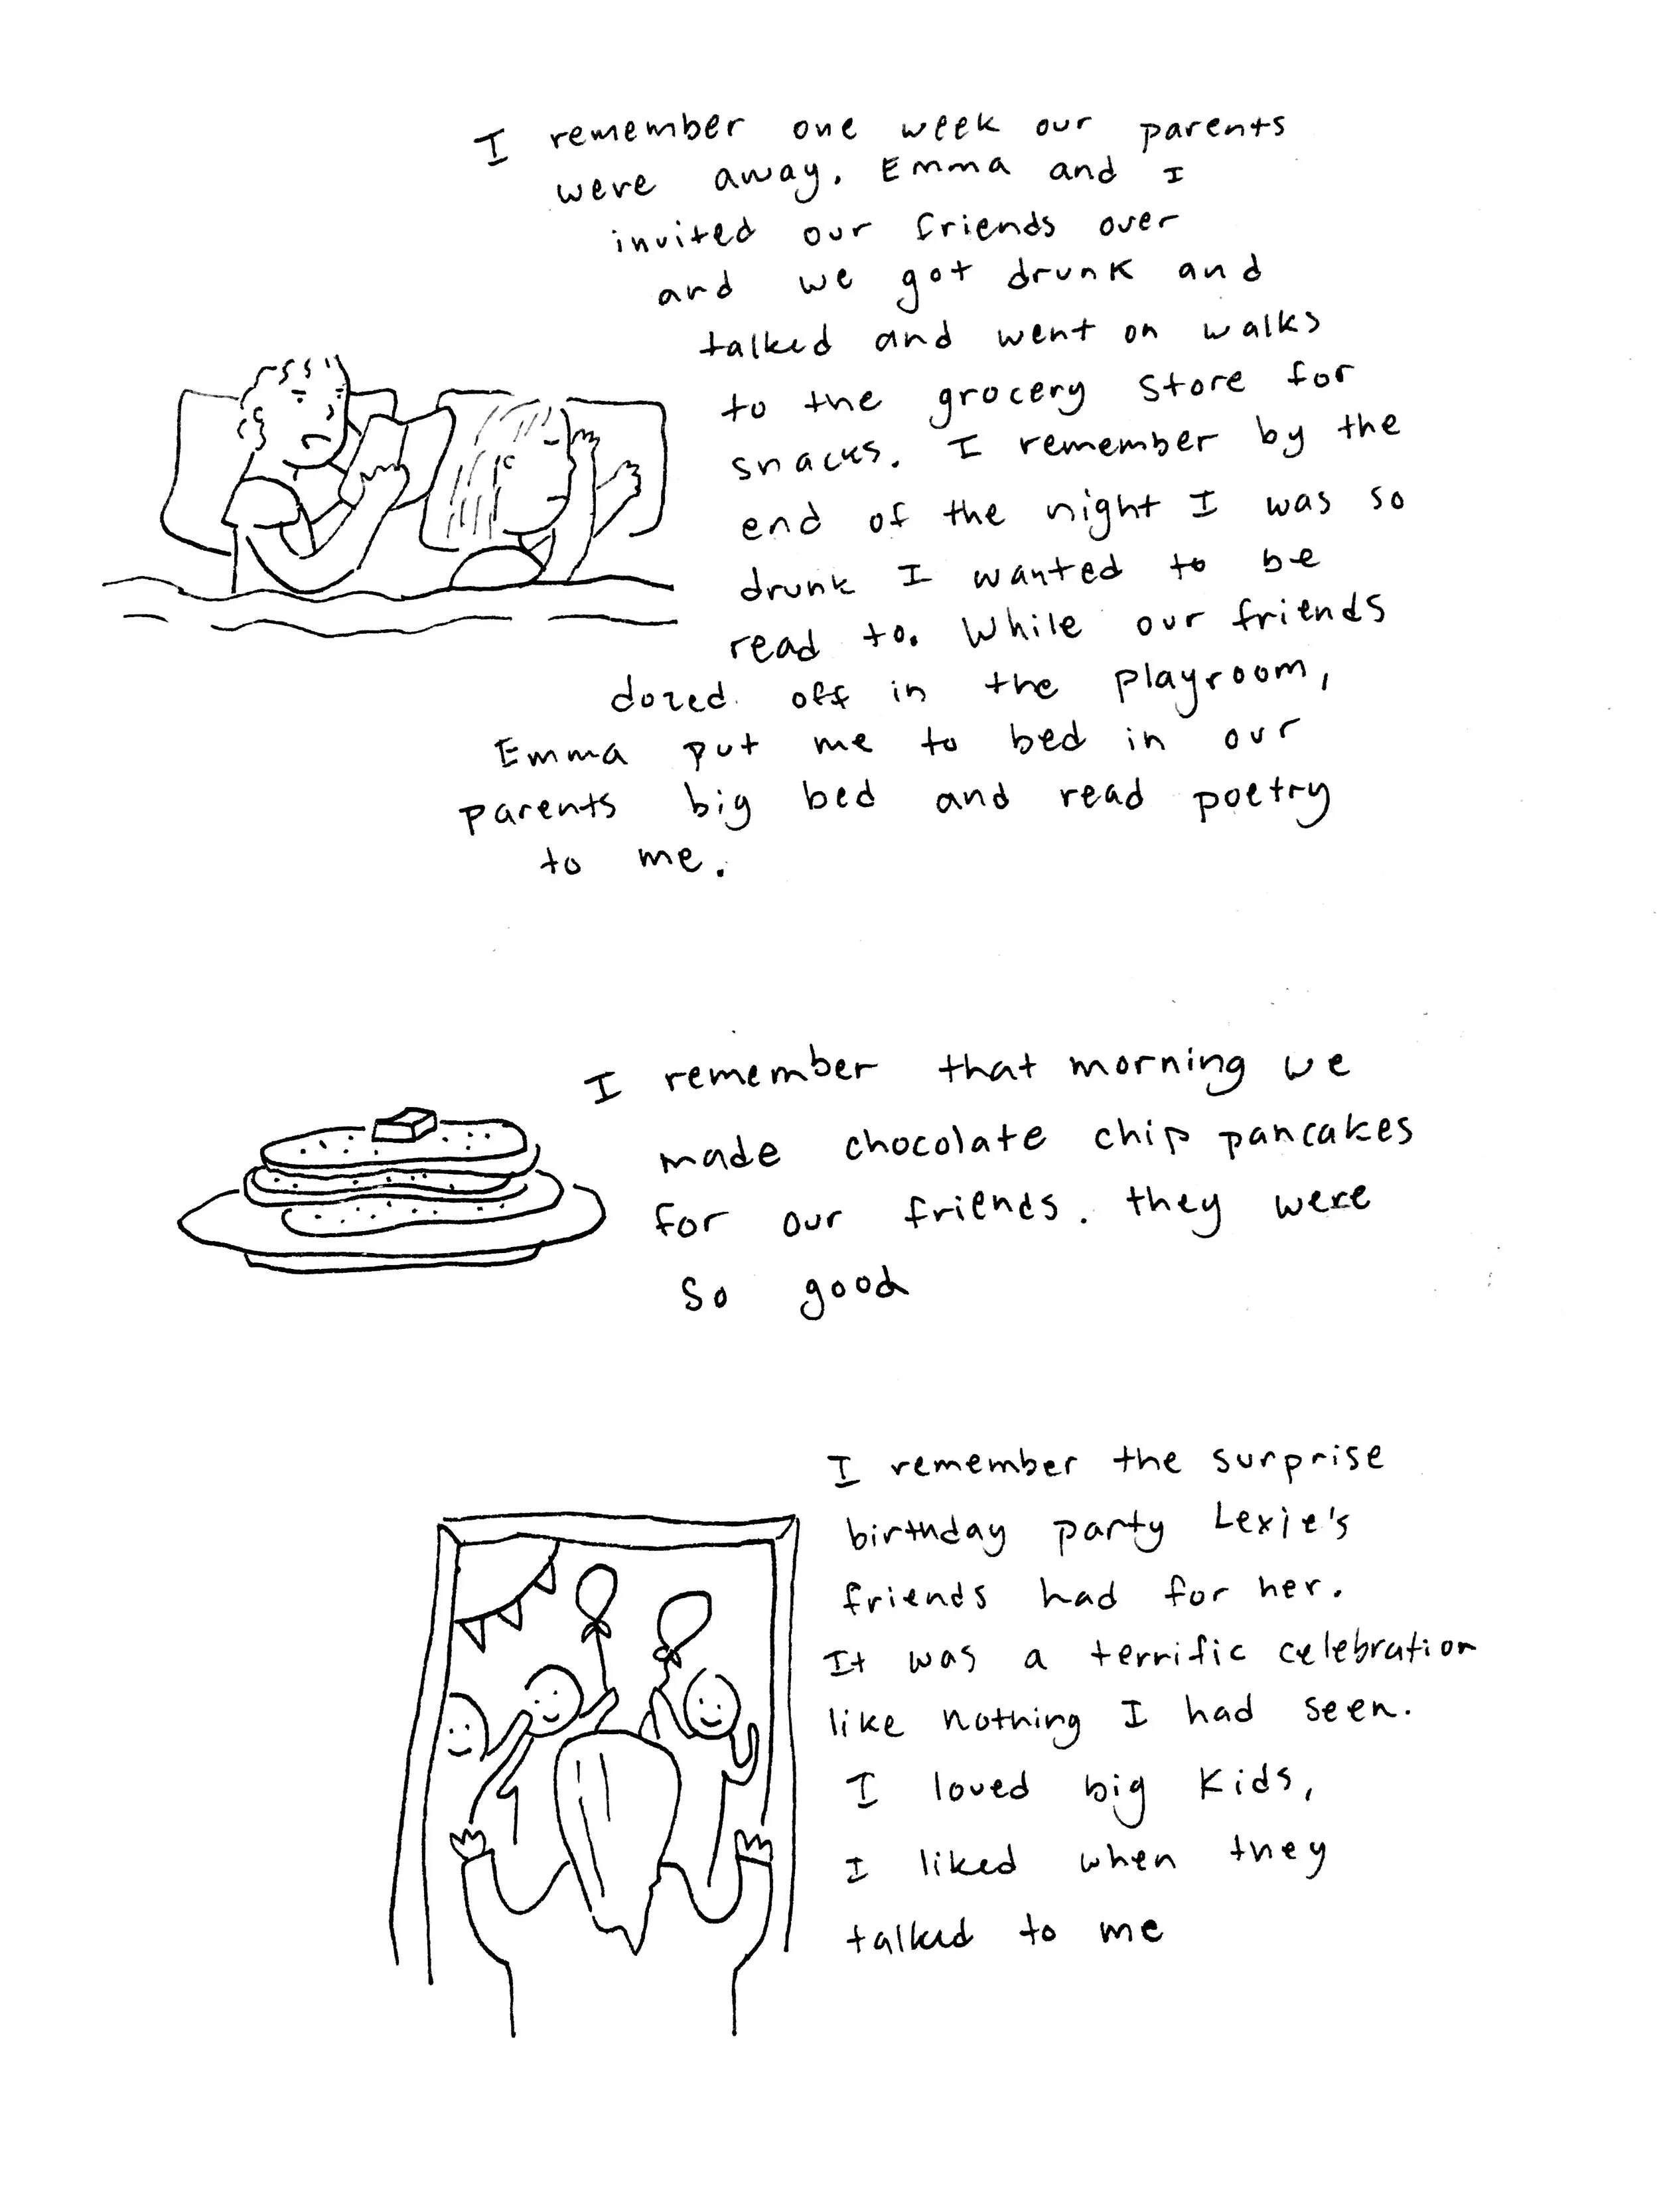 I remember one week our parents
were away. Emma and I
invited our friends over
and we got drunk and
talked and went on walks
to the grocery store for
snacks. I remember by the
end of the night I was so
drunk I wanted to be
read to. While our friends
dozed off in the playroom,
Emma put me to bed in our
parents big bed and read poetry
to me.
I remember that morning we
made chocolate chip pancakes
for our friends. they were
so good
I remember the surprise
birthday party Lexie's
friends had for her.
It was a terrific celebration
like nothing I had seen.
I loved big kids,
I liked when they
talked to me